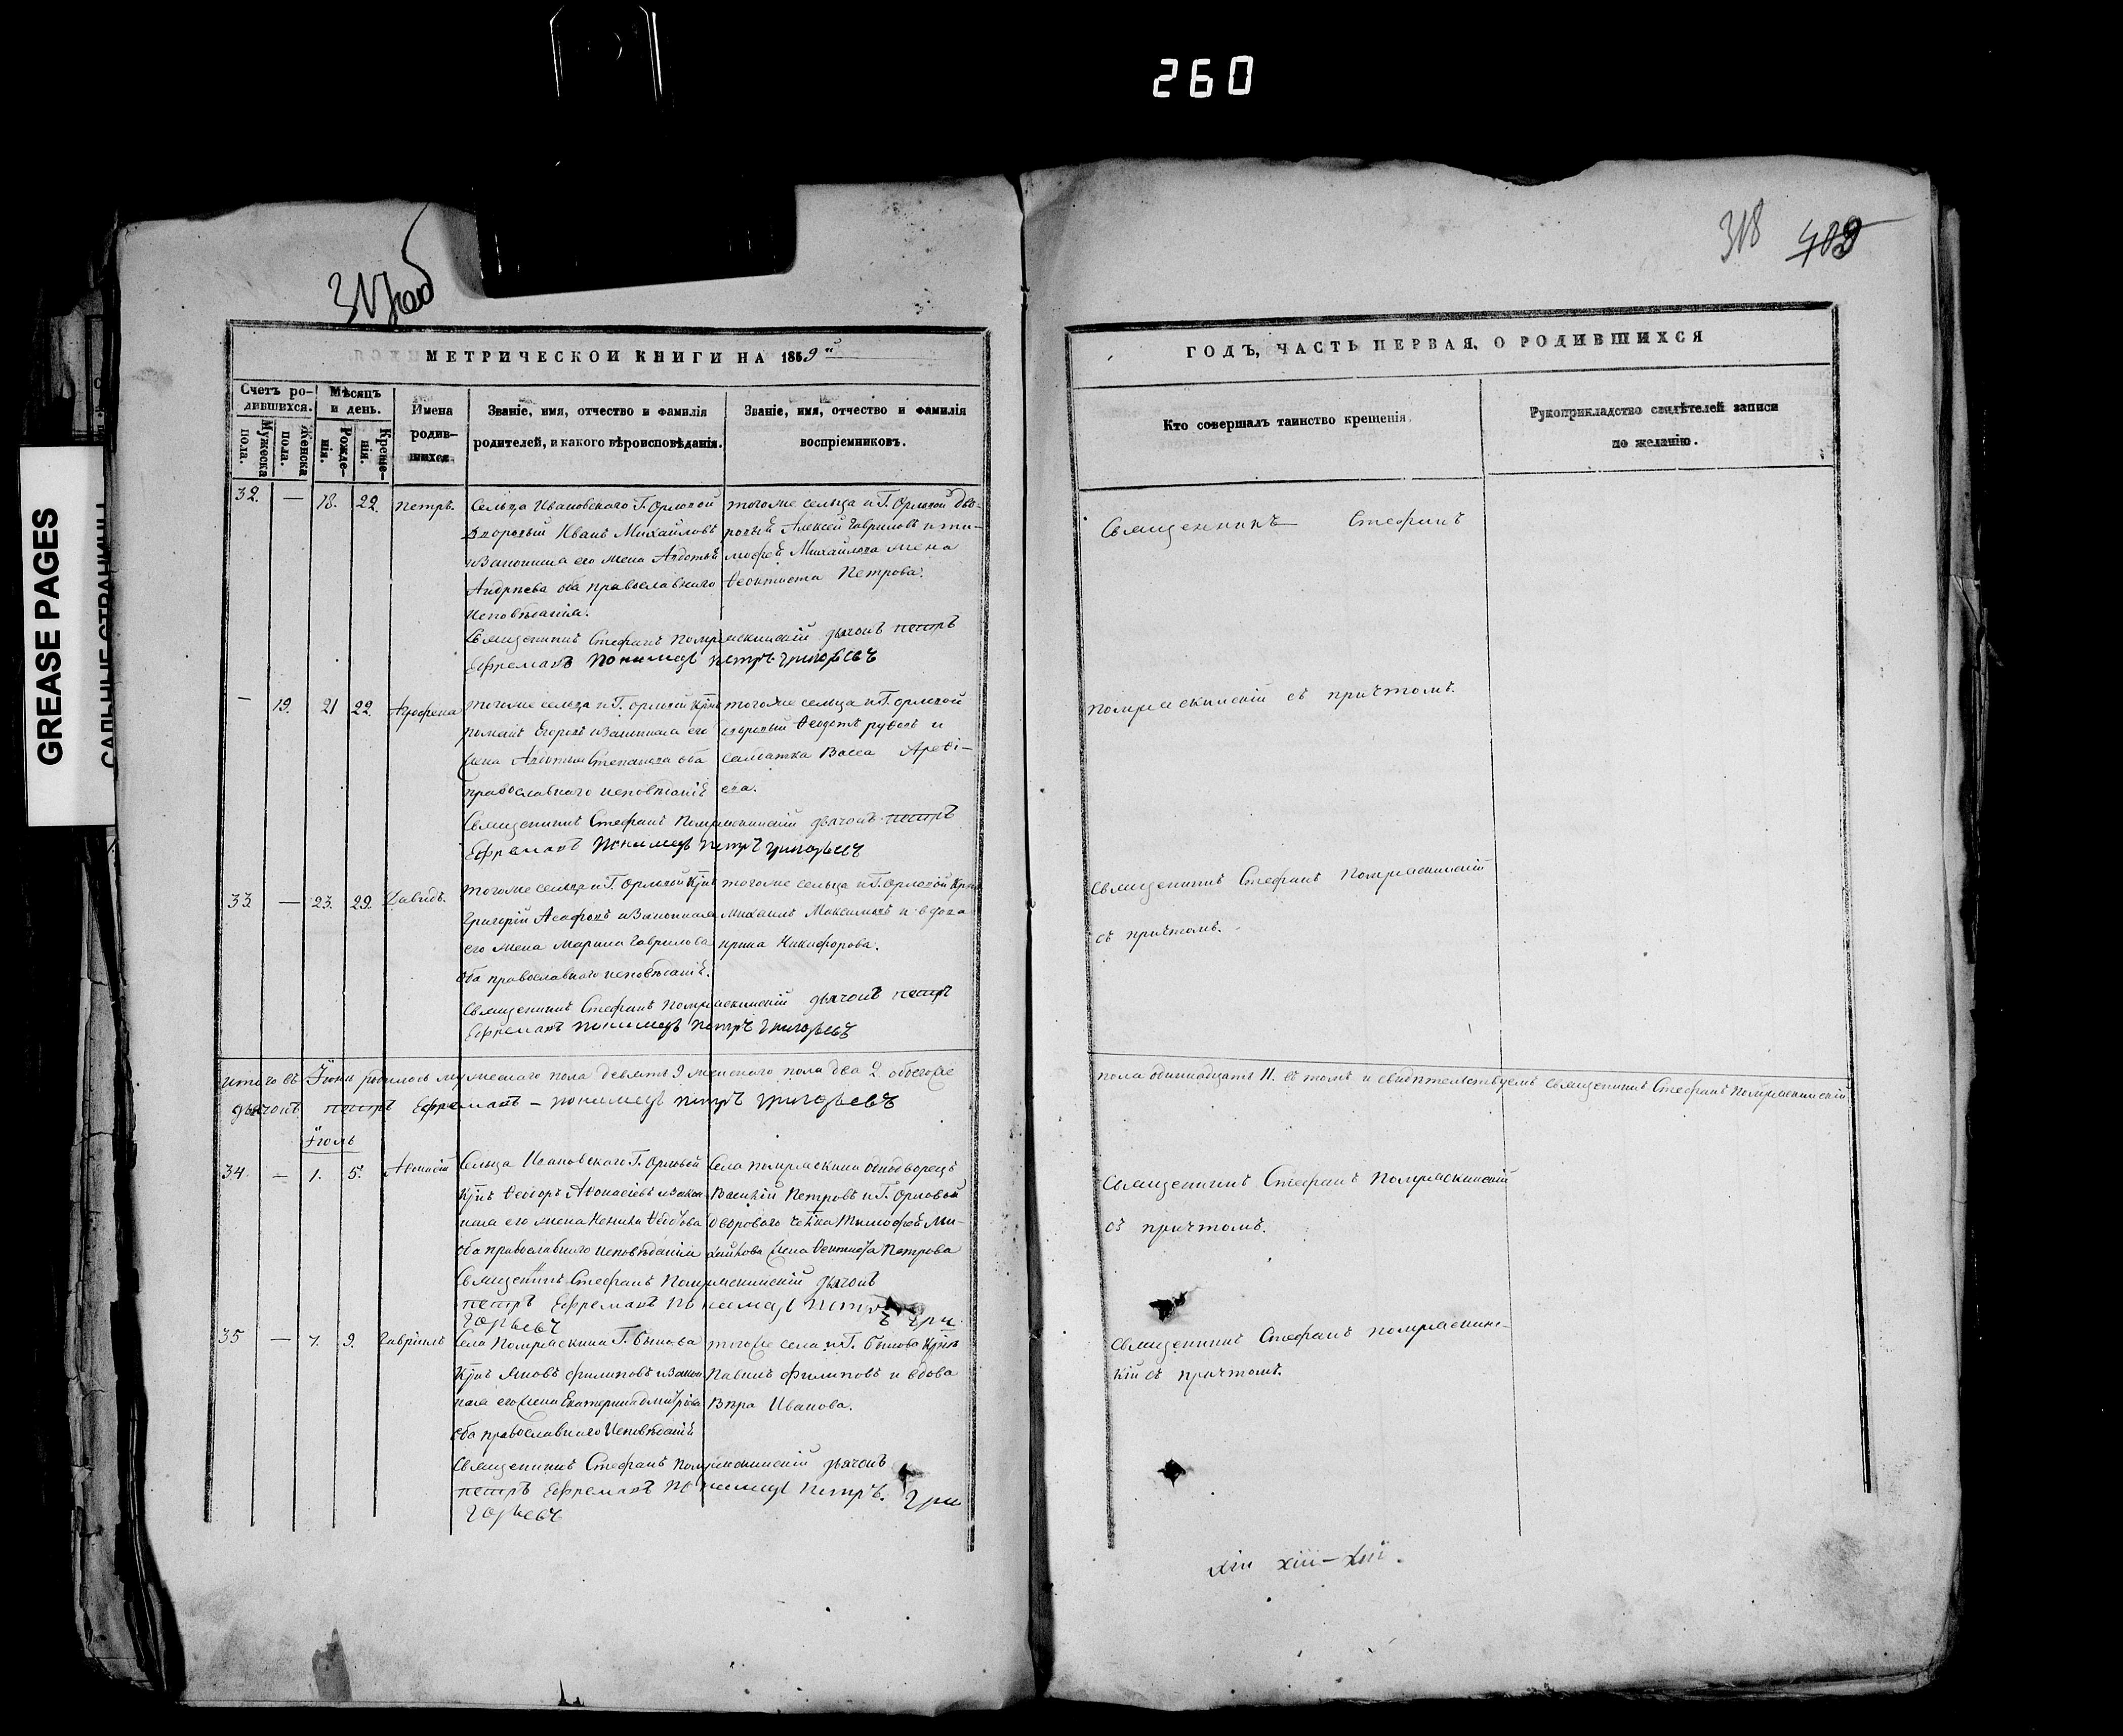 260
GREASE PAGES
САЛЬНЫЕ СТРАНИЦЫ
317об
318 409
МЕТРИЧЕСКОЙ КНИГИ НА 1859й
Счетъ родившихся.
Мужеска пола.
Женска пола.
Мѣсяцъ и день.
Рожденія.
Крещенія.
Имена родившихся
Званіе, имя, отчество и фамилія
родителей, и какого вѣроисповѣданія.
Званіе, имя, отчество и фамилія
воспріемниковъ.
32. — 18. 22. Петръ.
Сельца Ивановскаго Г. Орловой
дворовый Иванъ Михайловъ
и законная его жена Авдотья
Андреева оба православнаго
исповѣданія.
тогоже сельца и Г. Орловой дво-
ровый Алексей Гавриловъ и ти-
мофея Михайлова жена
Ѳеоктиста Петрова.
Священникъ Стефанъ дьячокъ петръ
Ефремовъ пономарь петръ григорьевъ
— 19. 21 22. Агрофена
тогоже сельца и Г. орловой крнъ
Егоровъ и законная его
жена Авдотья Степанова оба
православнаго исповѣданія
тогоже сельца и Г. орловой
дворовый Ѳеодотъ и
солдатка Васса
ева.
Священникъ Стефанъ дьячокъ петръ
Ефремовъ пономарь петръ григорьевъ
33. — 23. 29. Давидъ.
тогоже сельца и Г. Орловой крнъ
Григорій Агафоновъ и законная
его жена Марина Гаврилова
оба православнаго исповѣданія.
тогоже сельца и Г. Орловой крнъ
Михаилъ Максимовъ и вдова
ирина Никифорова.
Священникъ Стефанъ дьячокъ петръ
Ефремовъ пономарь петръ григорьевъ
итого въ Іюнѣ родилось мужескаго пола девять 9 женскаго пола два 2. обоегоже
дьячокъ петръ Ефремовъ — пономарь петръ григорьевъ
Іюль
34. — 1. 5. Аѳонасій
Сельца Ивановскаго Г. Орловой
крнъ Ѳеодоръ Аѳонасіевъ и закон-
ная его жена
оба православнаго исповѣданія
Села однодворецъ
Василій Петровъ и Г. Орловой
двороваго Тимофея Ми-
хайлова жена Ѳеоктиста Петрова
Священникъ Стефанъ дьячокъ
петръ Ефремовъ пономарь петръ гри-
горьевъ
35 — 7. 9. Гавріилъ
Села Г. Быкова
крнъ Яковъ Филиповъ и закон-
ная его жена Екатерина Дмитріева
оба православнаго исповѣданія
тогоже села и Г. Быкова крнъ
Павелъ Филиповъ и вдова
Вѣра Иванова.
Священникъ Стефанъ дьячокъ
петръ Ефремовъ пономарь петръ. гри
горьевъ
ГОДЪ, ЧАСТЬ ПЕРВАЯ, О РОДИВШИХСЯ
Кто совершалъ таинство крещенія.
Рукоприкладство свидѣтелей записи
по желанію.
Священникъ Стефанъ
съ причтомъ.
Священникъ Стефанъ
съ причтомъ.
пола одиннадцать 11. въ томъ и свидѣтельствуемъ священникъ Стефанъ
Священникъ Стефанъ
съ причтомъ.
Священникъ Стефанъ
кій съ причтомъ.